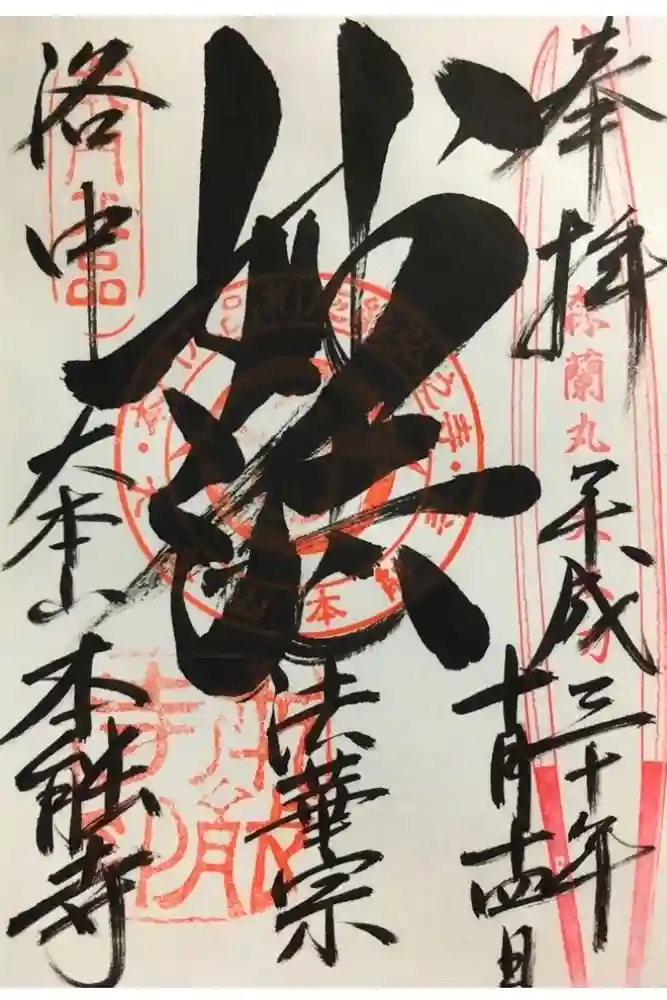 奉拝
森蘭丸
平成三十年
十月十四日
妙法
法華宗
洛中
大本山
本能寺